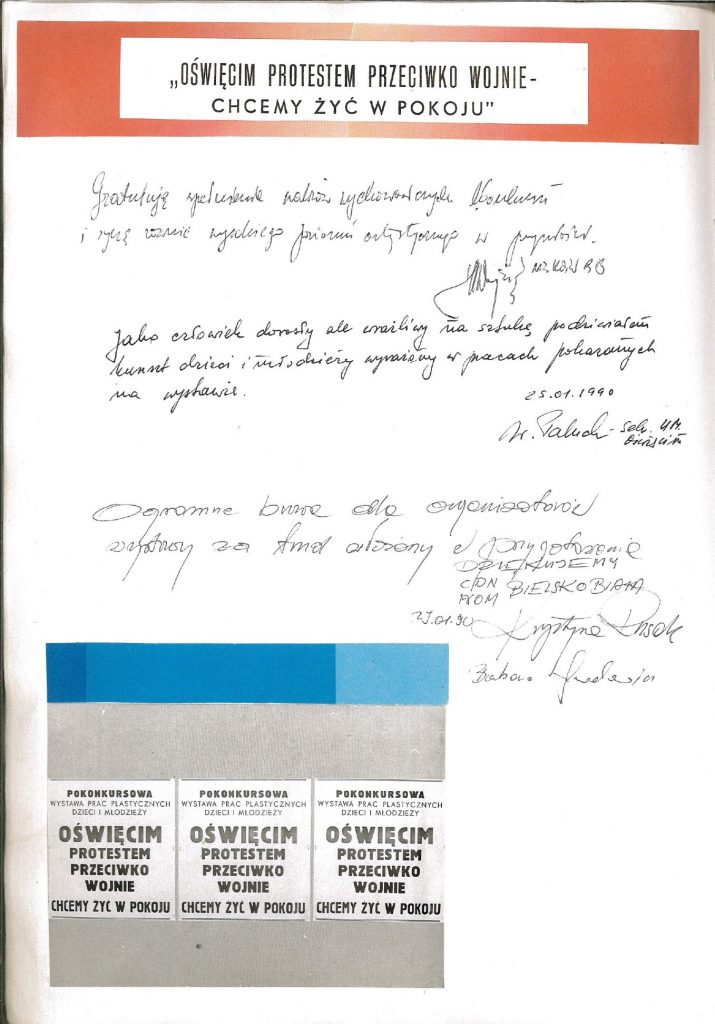 „OŚWIĘCIM PROTESTEM PRZECIWKO WOJNIE-
CHCEMY ŻYĆ W POKOJU”
Gratuluję
i życzę wysokiego poziomu artystycznego w przyszłości.
Jako człowiek dorosły ale wrażliwy na sztukę podziwiałam
kunszt dzieci i młodzieży wyrażony w pracach pokazanych
na wystawie.
25.01.1990
Ogromne brawa dla organizatorów
wystawy za trud włożony w przygotowanie
DZIĘKUJEMY
BIELSKO BIAŁA
25.01.90 Krystyna
Barbara
POKONKURSOWA
WYSTAWA PRAC PLASTYCZNYCH
DZIECI I MŁODZIEŻY
OŚWIĘCIM
PROTESTEM
PRZECIWKO
WOJNIE
CHCEMY ŻYĆ W POKOJU
POKONKURSOWA
WYSTAWA PRAC PLASTYCZNYCH
DZIECI I MŁODZIEŻY
OŚWIĘCIM
PROTESTEM
PRZECIWKO
WOJNIE
CHCEMY ŻYĆ W POKOJU
POKONKURSOWA
WYSTAWA PRAC PLASTYCZNYCH
DZIECI I MŁODZIEŻY
OŚWIĘCIM
PROTESTEM
PRZECIWKO
WOJNIE
CHCEMY ŻYĆ W POKOJU